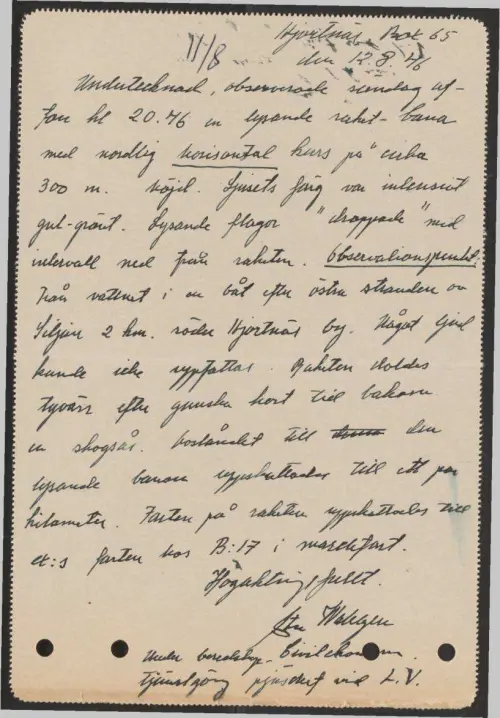 Hjortnäs, Box 65
11/8
den 12.8.46
Undertecknad, observerade söndag af-
ton kl 20.46 en lysande raket-bana
med nordlig horisontal kurs på cirka
300 m. höjd. Ljusets färg var intensivt
gul-grönt. Lysande flagor "droppade" med
intervall ned från raketen. Observationspunkt:
från vattnet i en båt efter östra stranden av
Siljan 2 km. söder Hjortnäs by. Något ljud
kunde icke uppfattas. Raketen doldes
tyvärr efter ganska kort tid bakom
en skogsås. Avståndet till den
lysande banan uppskattades till ett par
kilometer. Farten på raketen uppskattades till
farten hos B:17 i marschfart.
Högaktningsfullt.
Sten
Under beredskap.
tjänstgöring vid L.V.